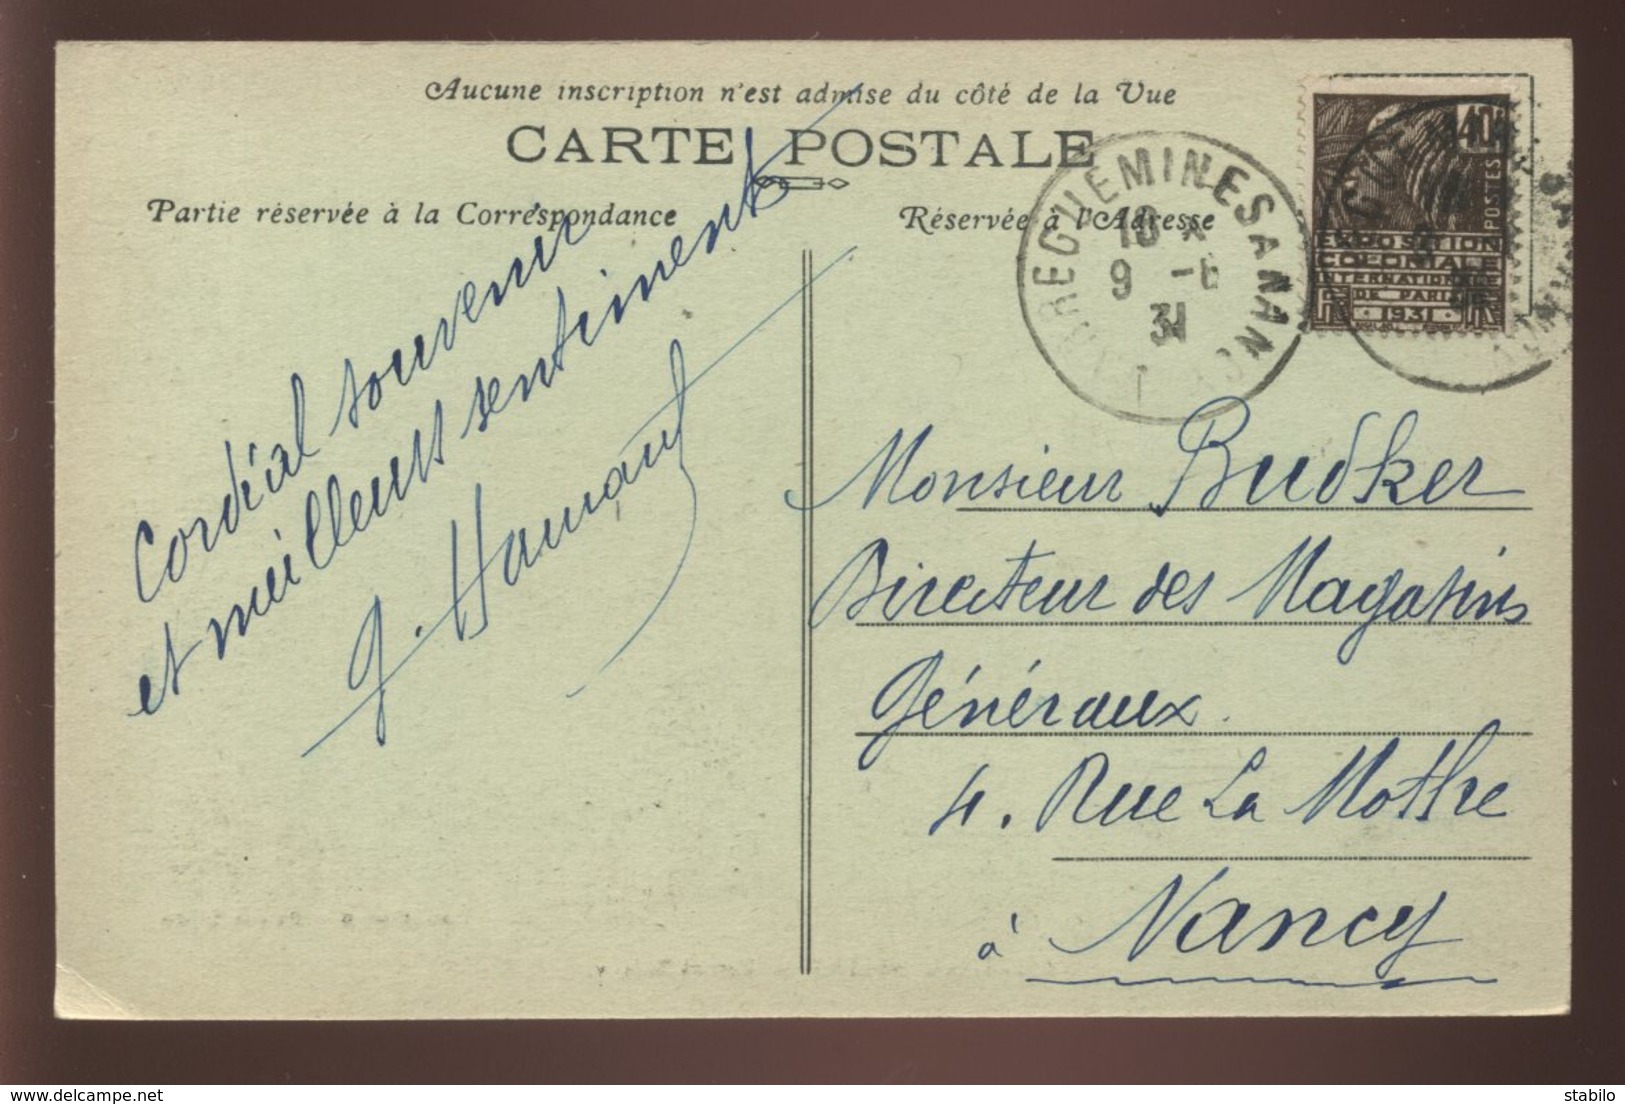 Aucune inscription n'est admise du côté de la Vue
CARTE POSTALE
Partie réservée à la Correspondance
Réservée à l'Adresse
Cordial souvenir
et meilleurs sentiments
SARREGUEMINES A NANCY
9 -
31
40
POSTES
EXPOSITION
COLONIALE
INTERNATIONALE
DE PARIS
1931
Monsieur Budker
Directeur des Magasins
Généraux
4. Rue La Mothe
à Nancy
delcampe.net
stabilo